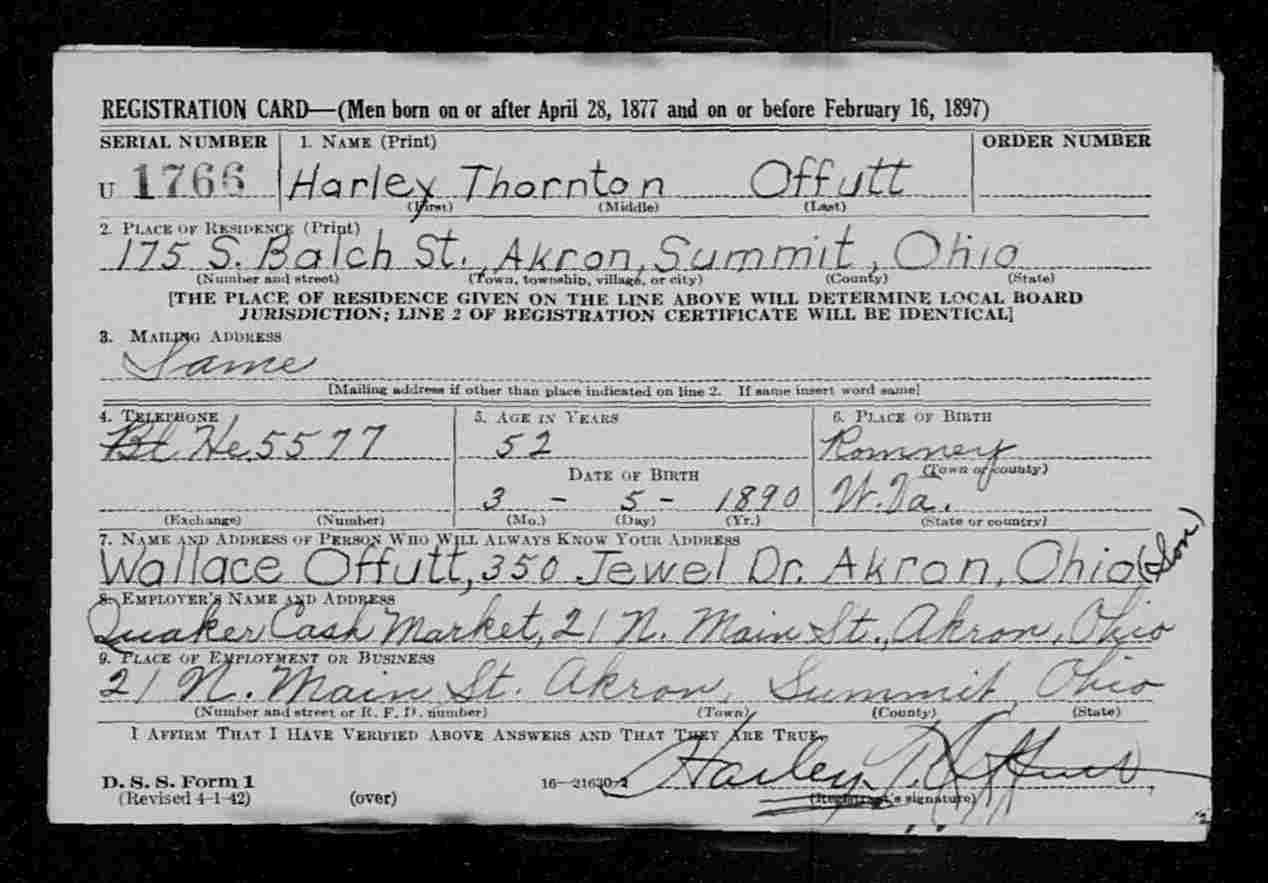 REGISTRATION CARD—(Men born on or after April 28, 1877 and on or before February 16, 1897)
SERIAL NUMBER 1. NAME (Print) ORDER NUMBER
U 1766 Harley Thornton Offutt
(First) (Middle) (Last)
2. PLACE OF RESIDENCE (Print)
175 S. Balch St., Akron, Summit, Ohio
(Number and street) (Town, township, village, or city) (County) (State)
[THE PLACE OF RESIDENCE GIVEN ON THE LINE ABOVE WILL DETERMINE LOCAL BOARD
JURISDICTION; LINE 2 OF REGISTRATION CERTIFICATE WILL BE IDENTICAL]
3. MAILING ADDRESS
Same
[Mailing address if other than place indicated on line 2. If same insert word same]
4. TELEPHONE 5. AGE IN YEARS 6. PLACE OF BIRTH
He 5577 52 Romney
DATE OF BIRTH (Town or county)
3 - 5 - 1890 W. Va.
(Exchange) (Number) (Mo.) (Day) (Yr.) (State or country)
7. NAME AND ADDRESS OF PERSON WHO WILL ALWAYS KNOW YOUR ADDRESS
Wallace Offutt, 350 Jewel Dr. Akron, Ohio (Son)
8. EMPLOYER'S NAME AND ADDRESS
Quaker Cash Market, 21 N. Main St., Akron, Ohio
9. PLACE OF EMPLOYMENT OR BUSINESS
21 N. Main St. Akron, Summit, Ohio
(Number and street or R. F. D. number) (Town) (County) (State)
I AFFIRM THAT I HAVE VERIFIED ABOVE ANSWERS AND THAT THEY ARE TRUE.
Harley T. Offutt
D. S. S. Form 1 16—21630-2
(Revised 4-1-42) (over) (Registrant's signature)